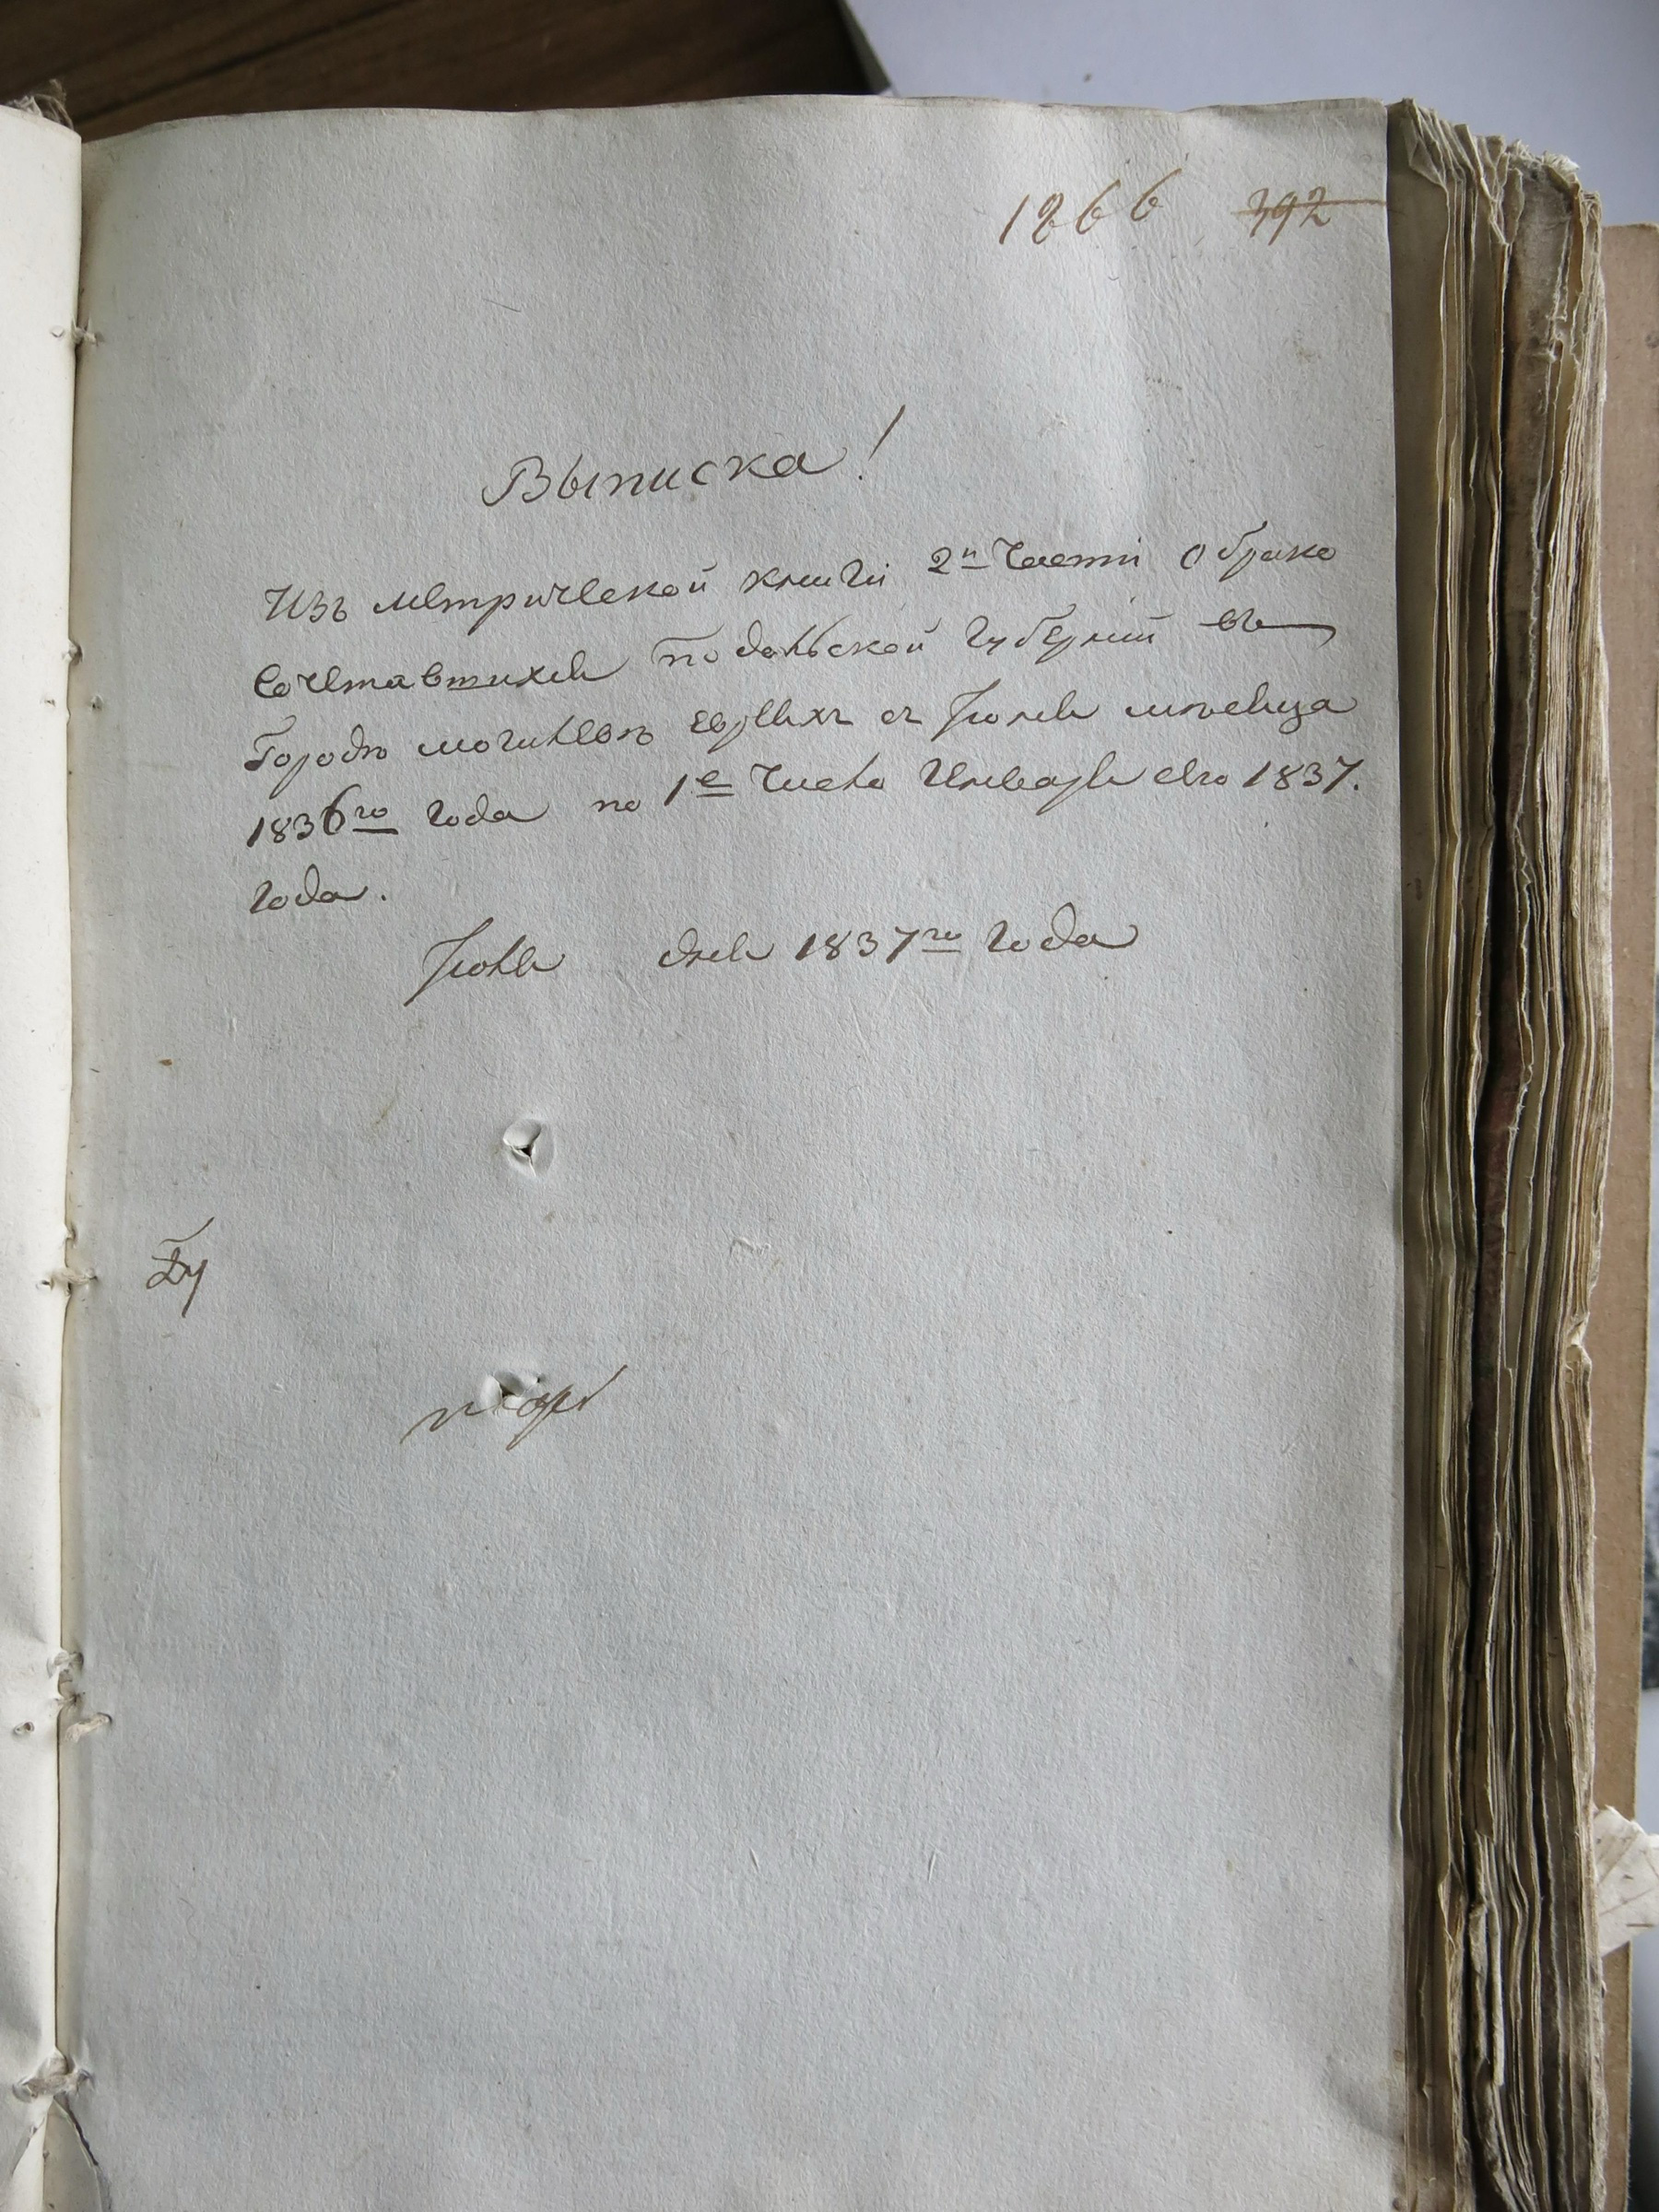 1266 392
Выписка!
Изъ метрической книги 2й Части О брако
Сочетавшихся Подольской Губерний въ
Городѣ могилевѣ евреихъ съ Іюня мѣсяца
1836го года по 1е Число Января сего 1837.
года.
Іюля дня 1837го года